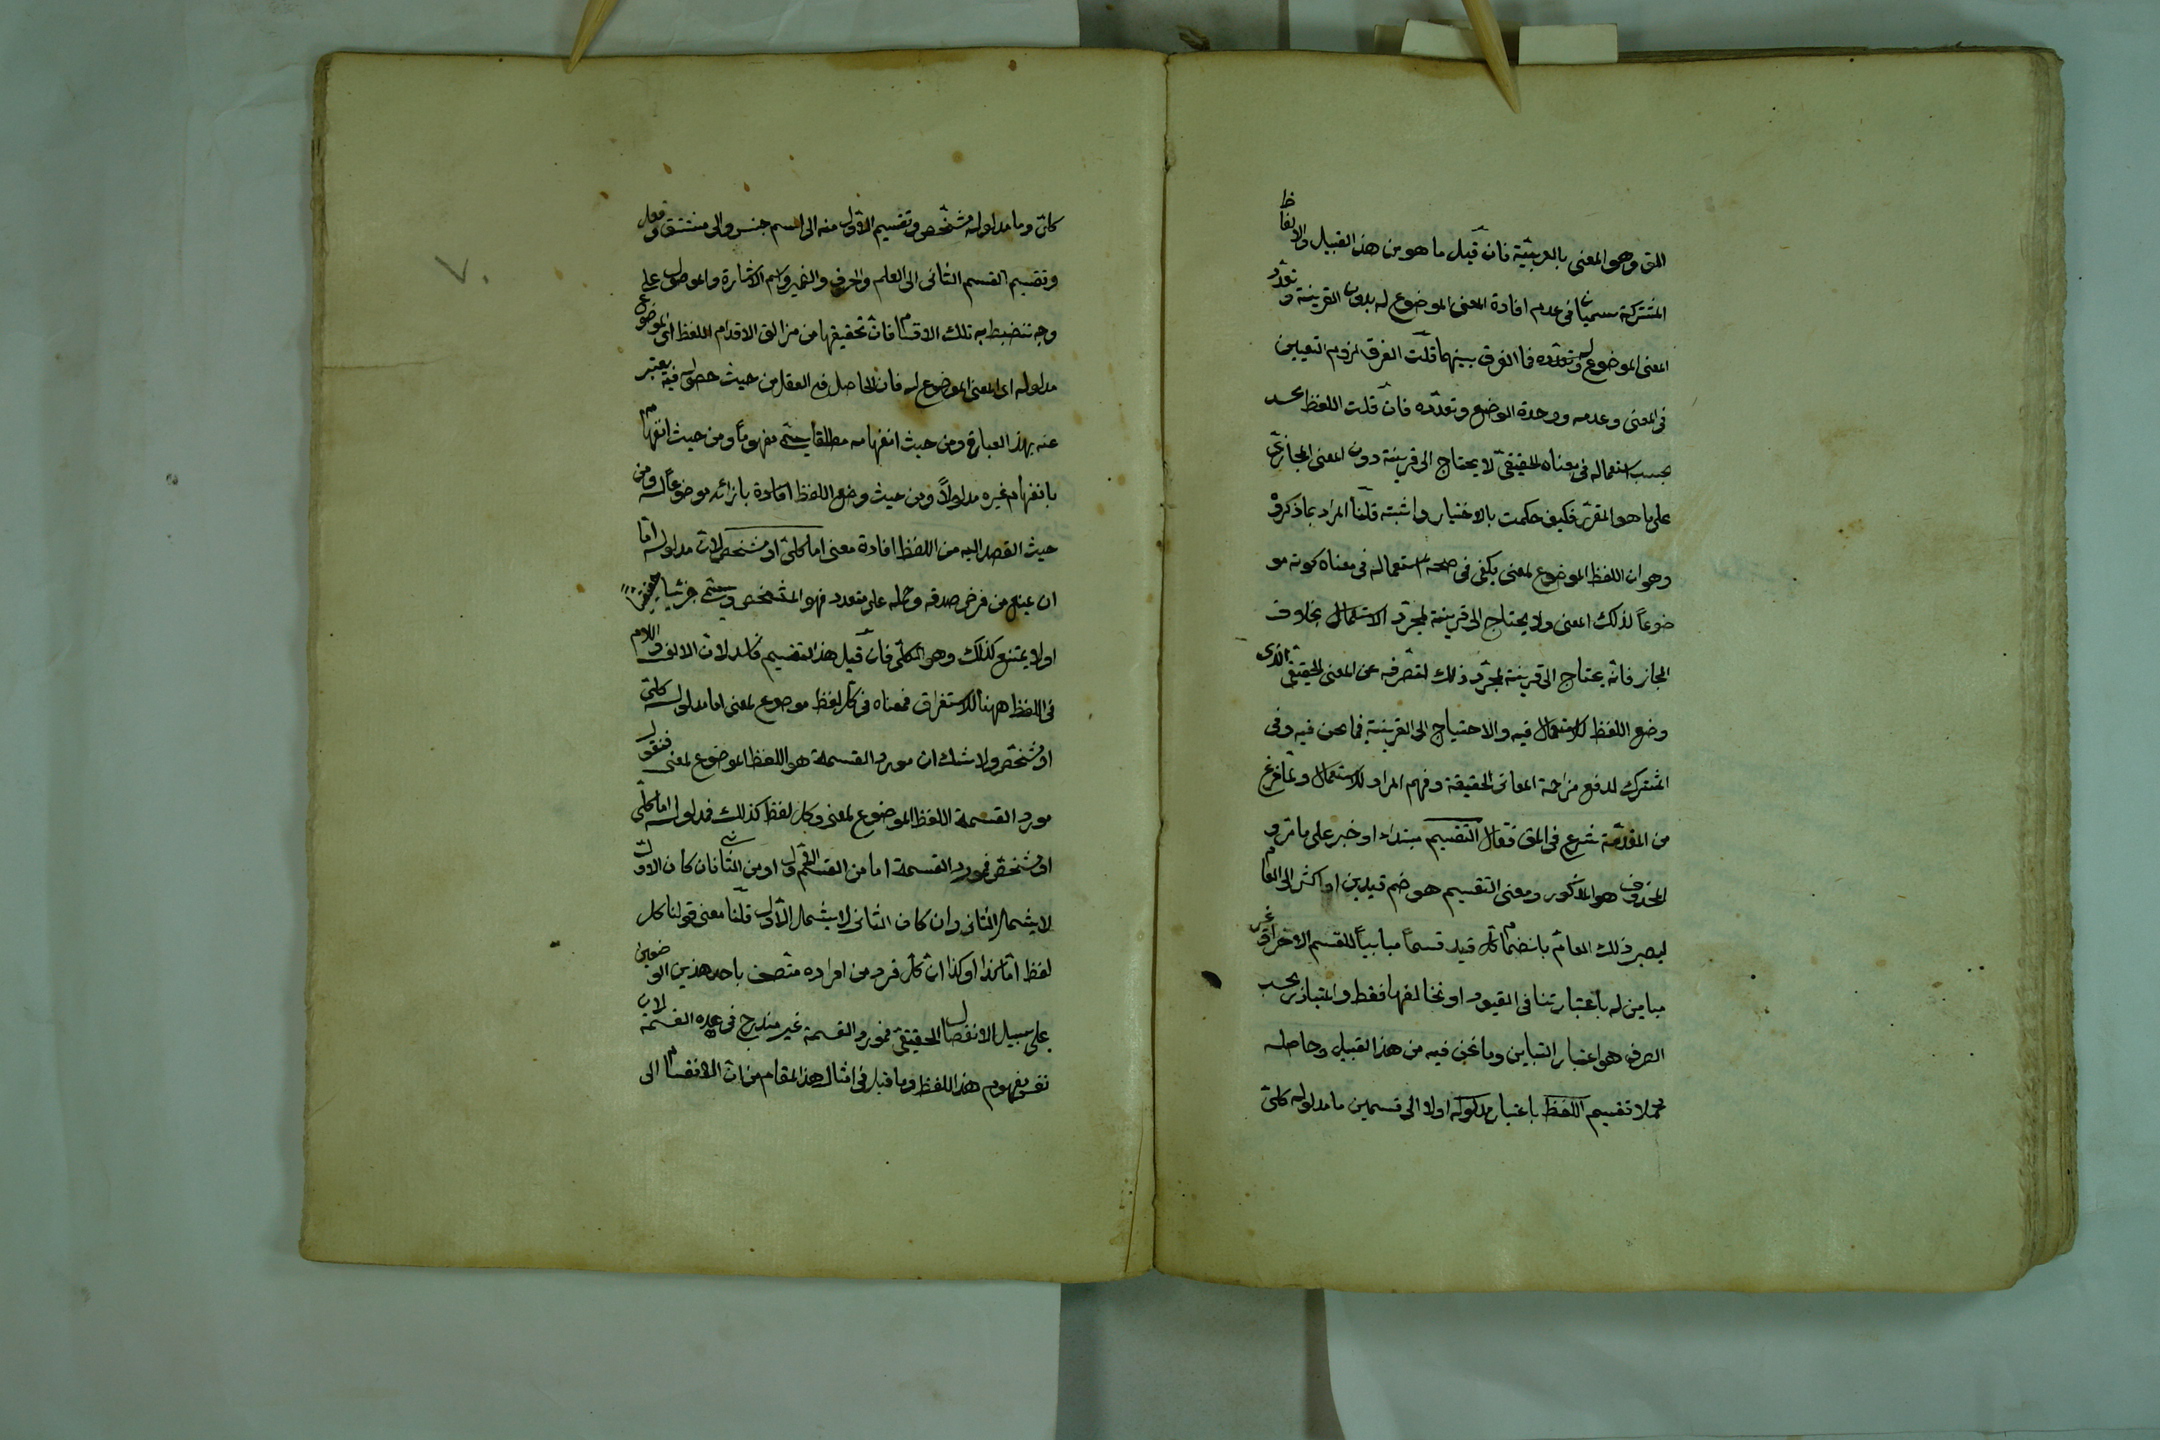 المتن وهو المعنى بالعربيّة فان قيل ما هو من هذا القبيل والالفاظ
المشتركة سميان فى عدم افادة المعنى الموضوع له بدون القرينة وتعدّد
المعنى الموضوع له وتعدّده فما الفرق بينهما قلت الفرق لزوم التعيين
فى المعنى وعدمه ووحدة الوضع وتعدّده فان قلت اللفظ بحسب
بحسب استعماله فى معناه الحقيقىّ لا يحتاج الى قرينة دون المعنى المجازىّ
على ما هو المقرّر فكيف حكمت بالاختيار واثبته قلنا المراد بما ذكروْ
وهو ان اللفظ الموضوع لمعنى يكفى فى صحة استعماله فى معناه كونه مو
ضوعاً لذلك المعنى ولا يحتاج الى قرينة لمجرّد الاستعمال بخلاف
المجاز فانّه يحتاج الى قرينة لمجرّد ذلك لتصرفه عن المعنى الحقيقىّ الذى
وضع اللفظ للاستعمال فيه والاحتياج الى القرينة فيما نحن فيه وفى
المشترك لدفع مزاحمة المعانى الحقيقة وفهم المراد لا للاستعمال ولمّا فرغ
من المقدّمة شرع فى المتن فقال التقسيم مبتداء او خبر على ما مرّ و
المحذوف هو المذكور ومعنى التقسيم هو ضم قيدين او اكثر الى العام
ليصير ذلك العامّ بانضمام كلّ قيد قسماً مبايناً للقسم الاخر اى غير
مباين له باعتبار تنافى القيود او تخالفها فقط واعتبار بحسب
العرف هو اعتبار التباين وما نحن فيه من هذا القبيل وحاصله
مجملا تقسيم اللفظ باعتبار مدلوله اولا الى قسمين ما مدلوله كلىّ
كلىّ وما مدلوله مشخّص وتقسيم الاوّل منه الى اسم جنس والى مشتق وفعل
وتقسيم القسم الثانى الى العلم والحرف والضمير واسم الاشارة والموصول على
وجه تنضبط به تلك الاقسام فانّ تحقيقها من مزالق الاقدام اللفظ اى الموضوع
مدلوله اى المعنى الموضوع له فان الحاصل فى العقل من حيث حصوله فيه يعتبر
عنه بهذا العبارة ومن حيث انفهامه مطلقا يسمّى مفهوماً ومن حيث انفهام
بانفهام غيره مدلولاً ومن حيث وضع اللفظ افادة بازائه موضوعاً له ومن
حيث القصد اليه من اللفظ افادة معنى اما كلىّ او مشخص لانّ مدلوله امّا
ان يمنع من فرض صدقه وحمله على متعدد فهو المشخص ويسمّى جزئيا حقيقياً
او لا يمتنع كذلك وهو الكلّى فان قيل هذا التقسيم فاسد لانّ الالف واللام
فى اللفظ ههنا للاستغراق فمعناه فى كل لفظ موضوع لمعنى اما مدلوله كلىّ
او مشخص ولا شك ان مورد القسمة هو اللفظ الموضوع لمعنى فنقول
مورد القسمة اللفظ الموضوع لمعنى وكل لفظ كذلك فمدلوله اما كلّى
او مشخص فمورد القسمة اما من القسم الاول او من الثانى فان كان الاول
لا يشمل الثانى وان كان الثانى لا يشمل الاول قلنا معنى قولنا كل
لفظ امّا كذا او كذا انّ كلّ فرد من افراده متّصف باحد هذين الوضعين
على سبيل الانفصال الحقيقىّ فمورد القسمة غير مندرج فى هذه القسمة لان
نفس مفهوم هذا اللفظ وما قيل فى امثال هذا المقام من انّ الانقسام الى
٧.